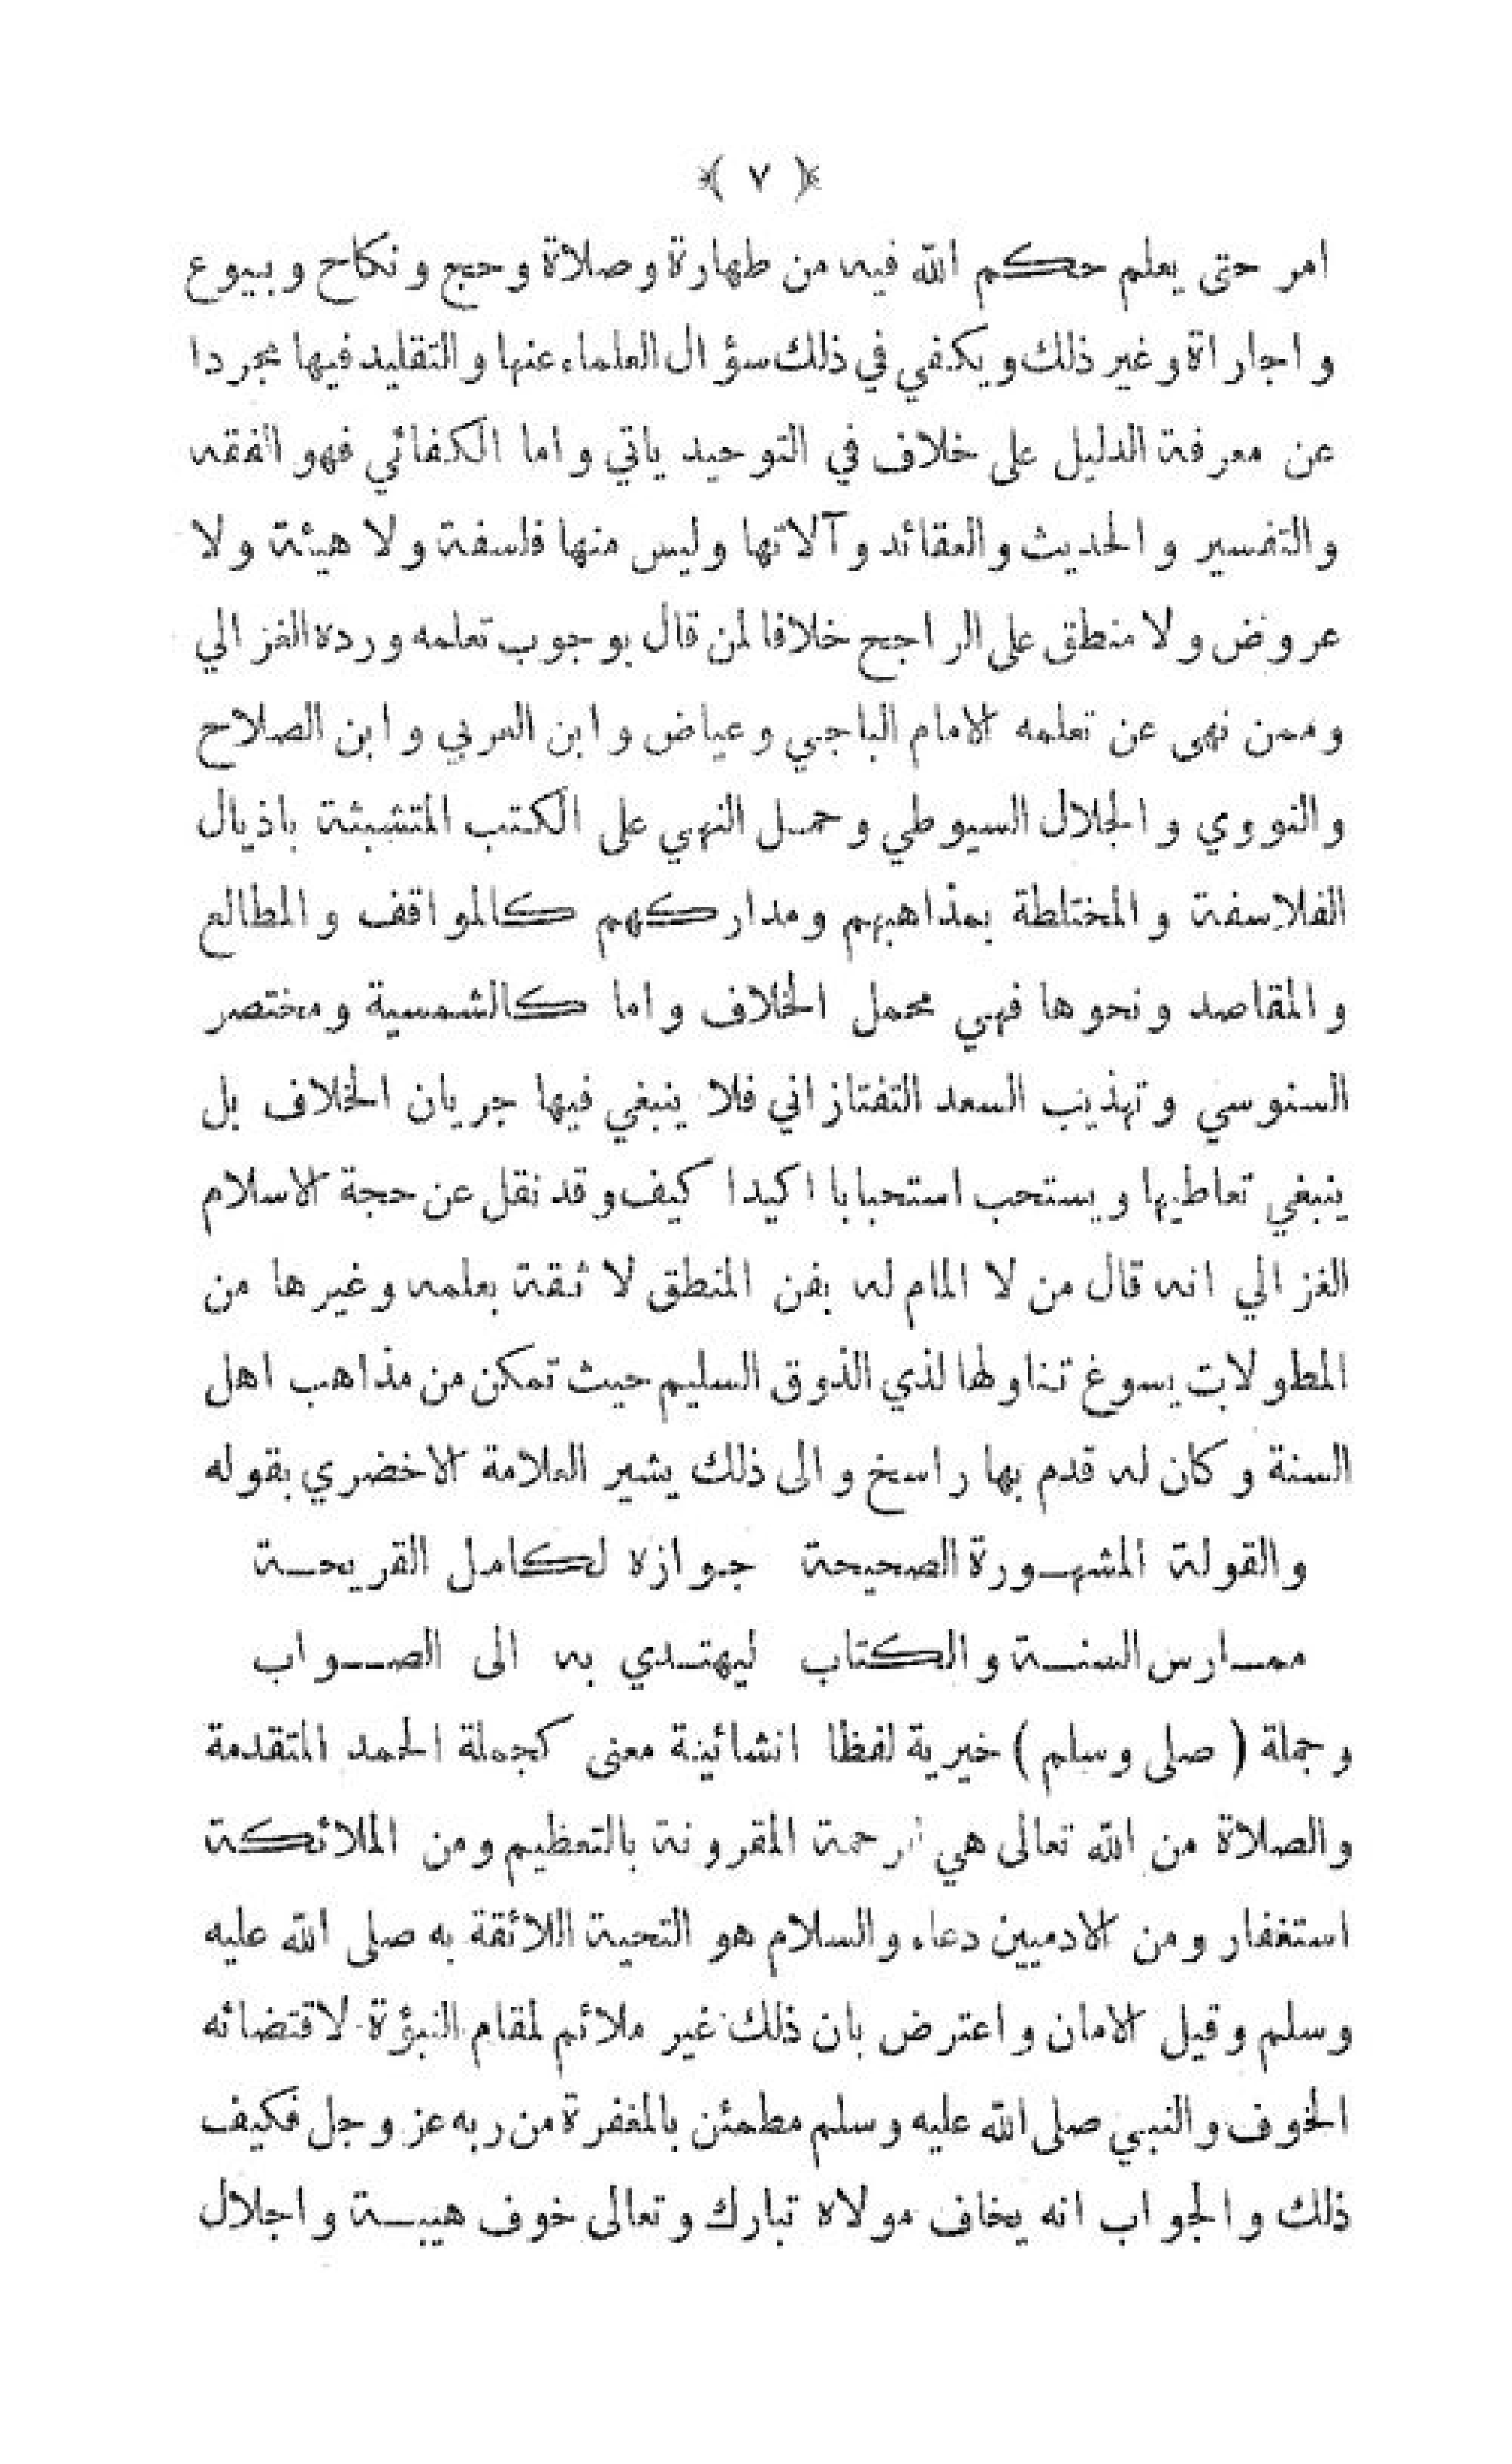 ﴿ ٧ ﴾
امر حتى يعلم حكم الله فيه من طهارة وصلاة وحج ونكاح وبيوع
واجاراة وغير ذلك ويكفي في ذلك سؤال العلماء عنها والتقليد فيها مجردا
عن معرفة الدليل على خلاف في التوحيد ياتي واما الكفائي فهو الفقه
والتفسير والحديث والعقائد وآلاتها وليس منها فلسفة ولا هيئة ولا
عروض ولا منطق على الراجح خلافا لمن قال بوجوب تعلمه ورده الغزالي
وممن نهى عن تعلمه الامام الباجي وعياض وابن العربي وابن الصلاح
والنووي والجلال السيوطي وحمل النهي على الكتب المتشبثة باذيال
الفلاسفة والمختلطة بمذاهبهم ومداركهم كالمواقف والمطالع
والمقاصد ونحوها فهي محمل الخلاف واما كالشمسية ومختصر
السنوسي وتهذيب السعد التفتازاني فلا ينبغي فيها جريان الخلاف بل
ينبغي تعاطيها ويستحب استحبابا اكيدا كيف وقد نقل عن حجة الاسلام
الغزالي انه قال من لا المام له بفن المنطق لا ثقة بعلمه وغيرها من
المطولات يسوغ تناولها لذي الذوق السليم حيث تمكن من مذاهب اهل
السنة وكان له قدم بها راسخ والى ذلك يشير العلامة الاخضري بقوله
والقولة المشهورة الصحيحة جوازه لكامل القريحة
ممارس السنة والكتاب ليهتدي به الى الصواب
وجملة ( صلى وسلم ) خبرية لفظا انشائية معنى كجملة الحمد المتقدمة
والصلاة من الله تعالى هي الرحمة المقرونة بالتعظيم ومن الملائكة
استغفار ومن الادميين دعاء والسلام هو التحية اللائقة به صلى الله عليه
وسلم وقيل الامان واعترض بان ذلك غير ملائم لمقام النبؤة لاقتضائه
الخوف والنبي صلى الله عليه وسلم مطمئن بالمغفرة من ربه عز وجل فكيف
ذلك والجواب انه يخاف مولاه تبارك وتعالى خوف هيبة واجلال